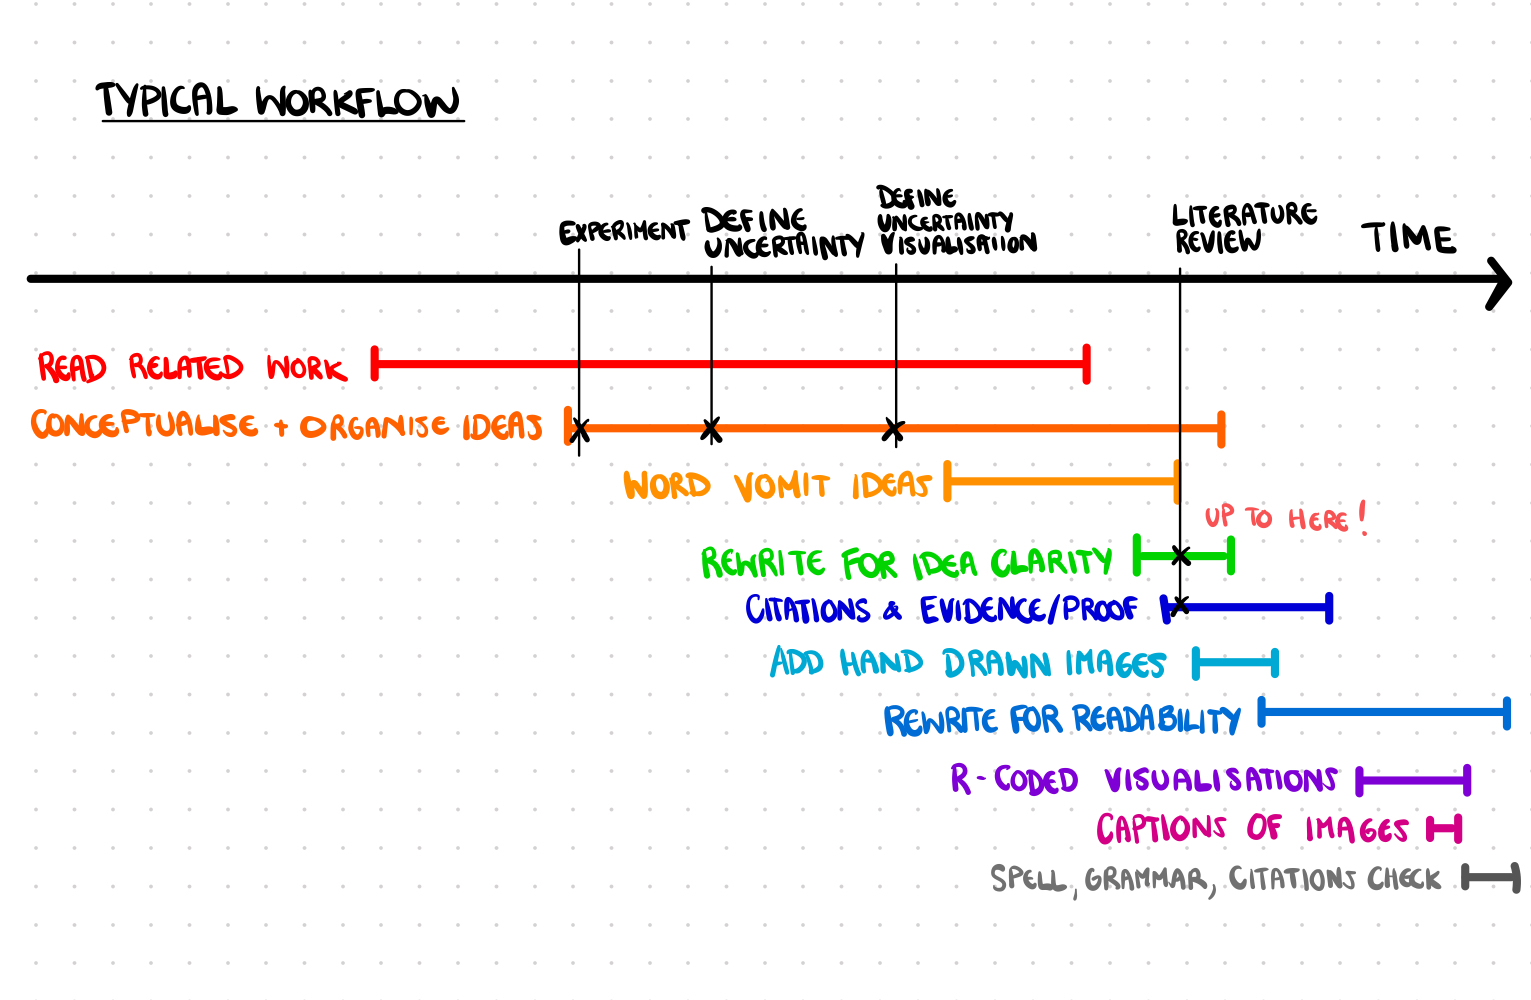 TYPICAL WORKFLOW
EXPERIMENT
DEFINE
UNCERTAINTY
DEFINE
UNCERTAINTY
VISUALISATION
LITERATURE
REVIEW
TIME
READ RELATED WORK
CONCEPTUALISE + ORGANISE IDEAS
WORD VOMIT IDEAS
UP TO HERE!
REWRITE FOR IDEA CLARITY
CITATIONS & EVIDENCE/PROOF
ADD HAND DRAWN IMAGES
REWRITE FOR READABILITY
R-CODED VISUALISATIONS
CAPTIONS OF IMAGES
SPELL, GRAMMAR, CITATIONS CHECK